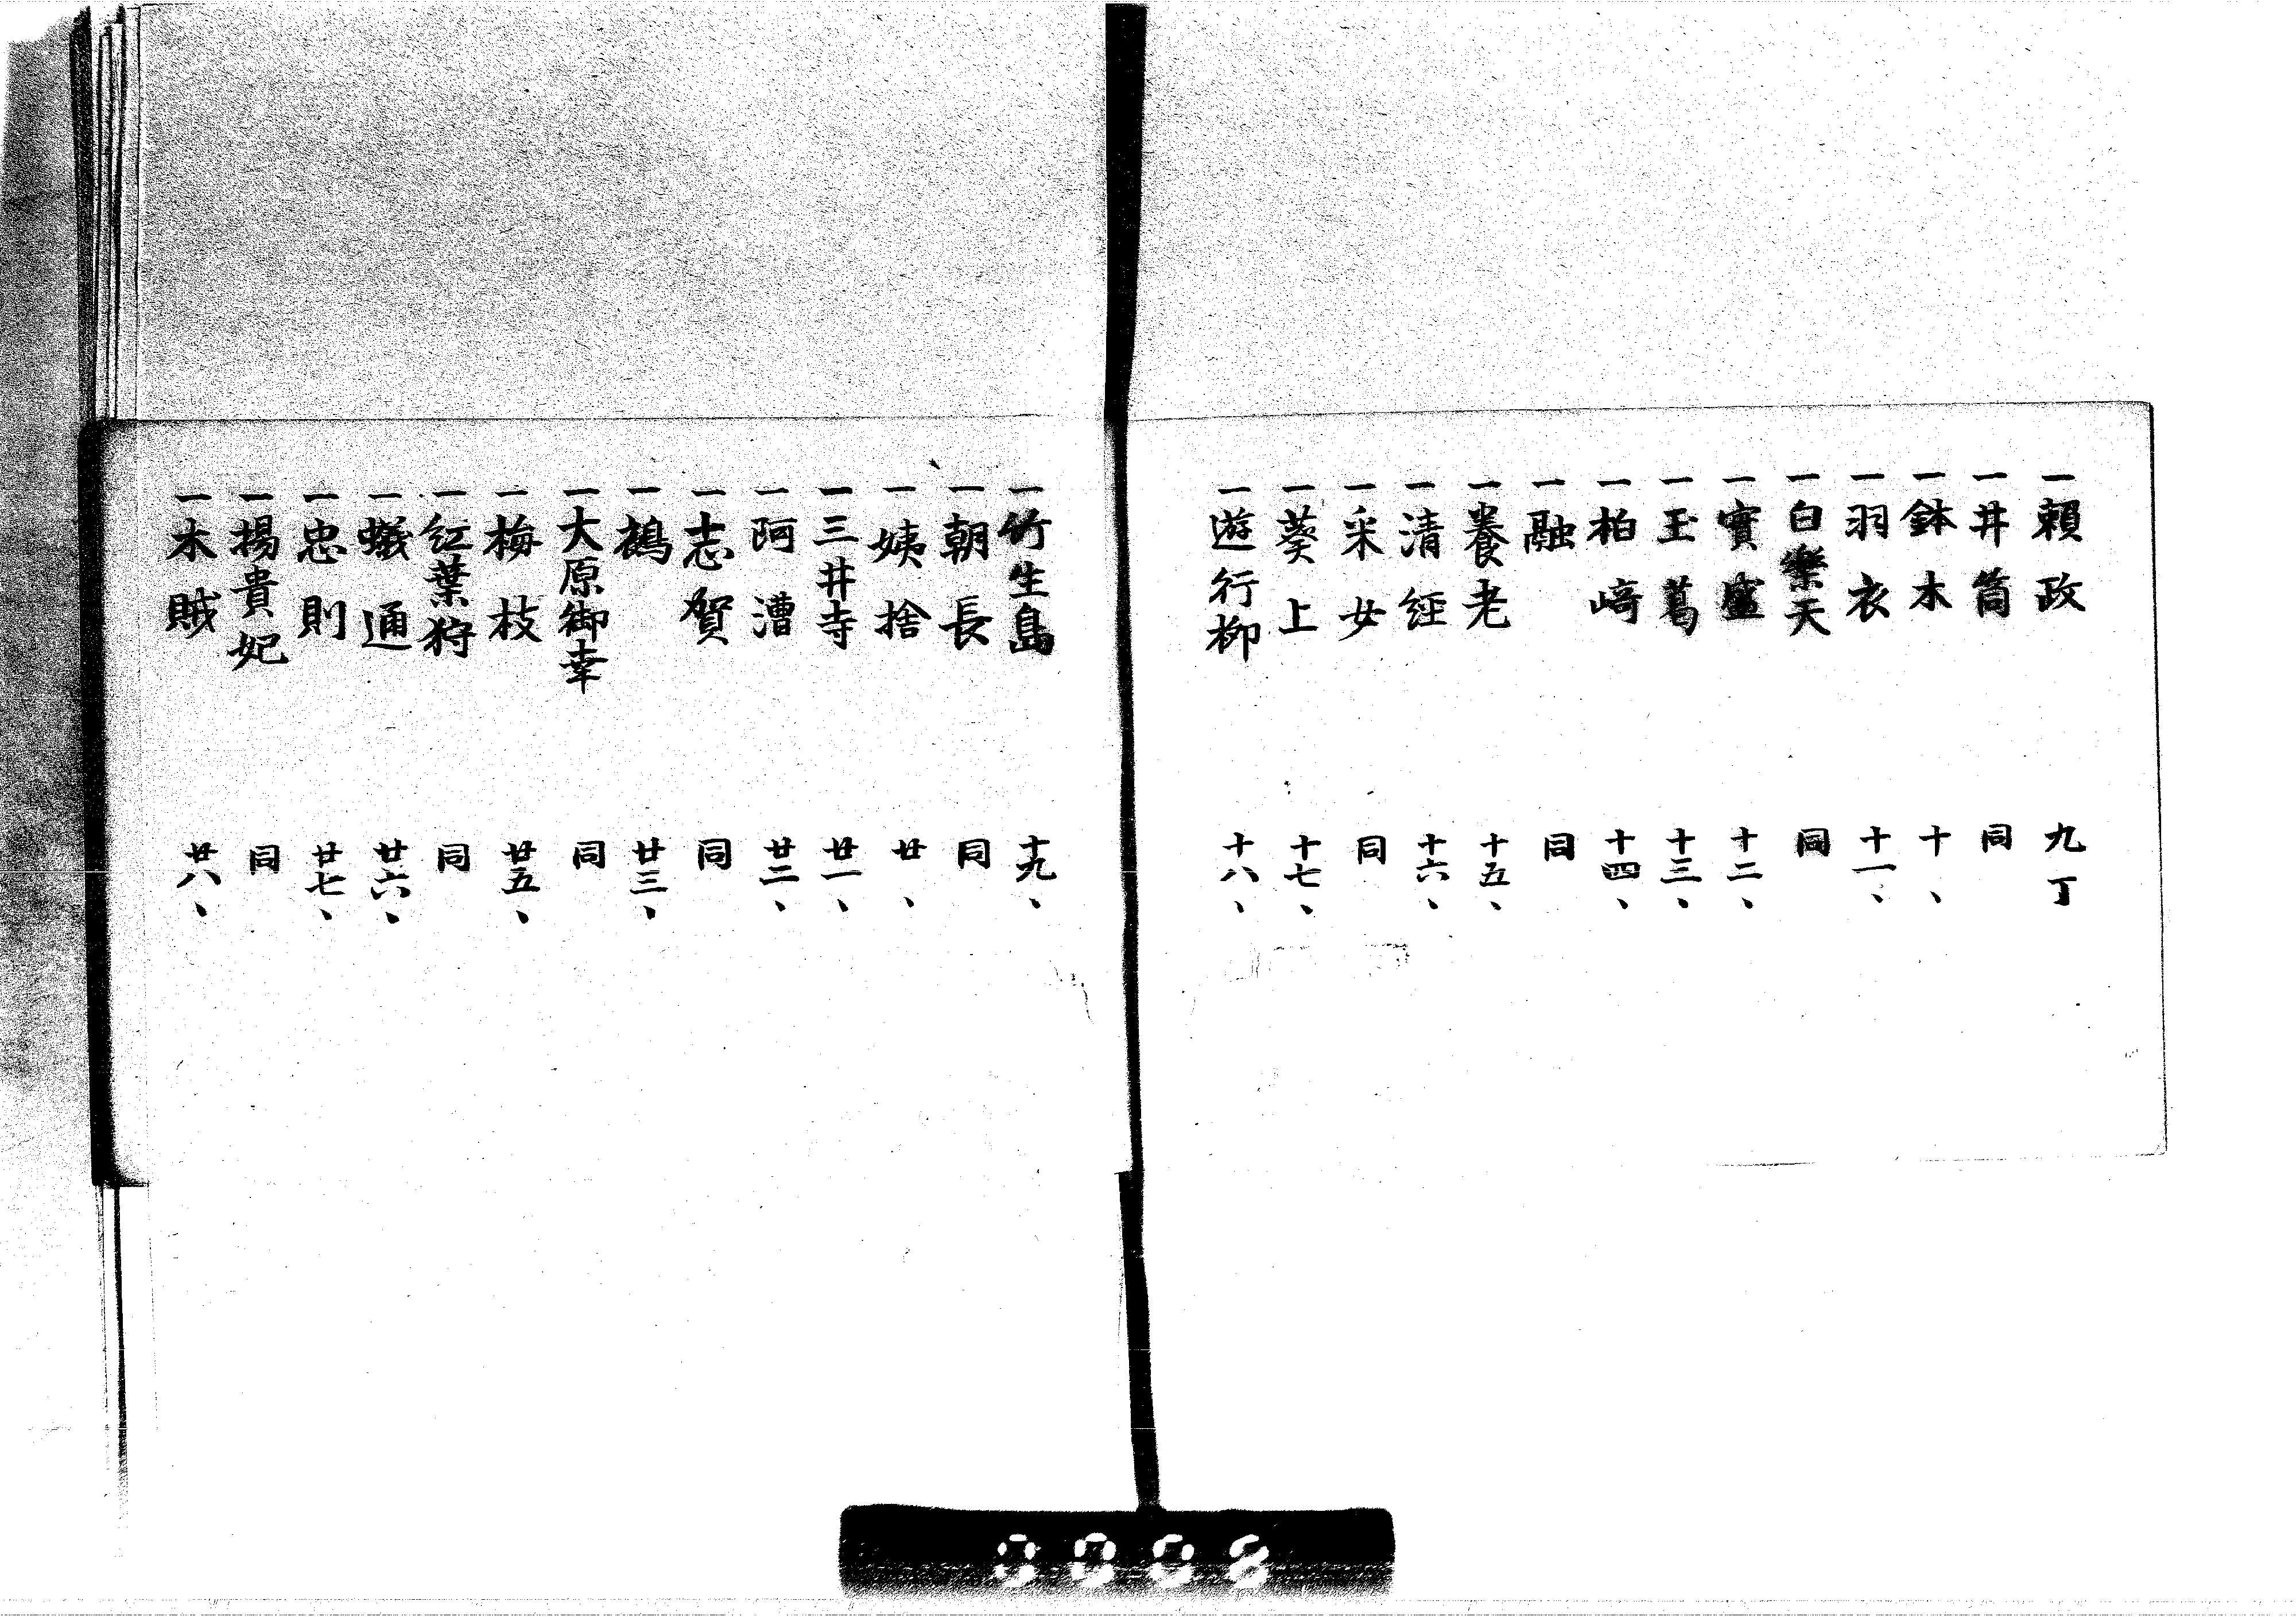 一頼政 九丁
一井筒 同
一鉢木 十、
一羽衣 十一、
一白樂天 同
一實盛 十二、
一玉葛 十三、
一柏﨑 十四、
一融 同
一養老 十五、
一清經 十六、
一采女 同
一葵上 十七、
一遊行柳 十八、
一竹生島 十九、
一朝長 同
一姨捨 廿、
一三井寺 廿一、
一阿漕 廿二、
一志賀 同
一鵺 廿三、
一大原御幸 同
一梅枝 廿五、
一紅葉狩 同
一蟻通 廿六、
一忠則 廿七、
一楊貴妃 同
一木賊 廿八、